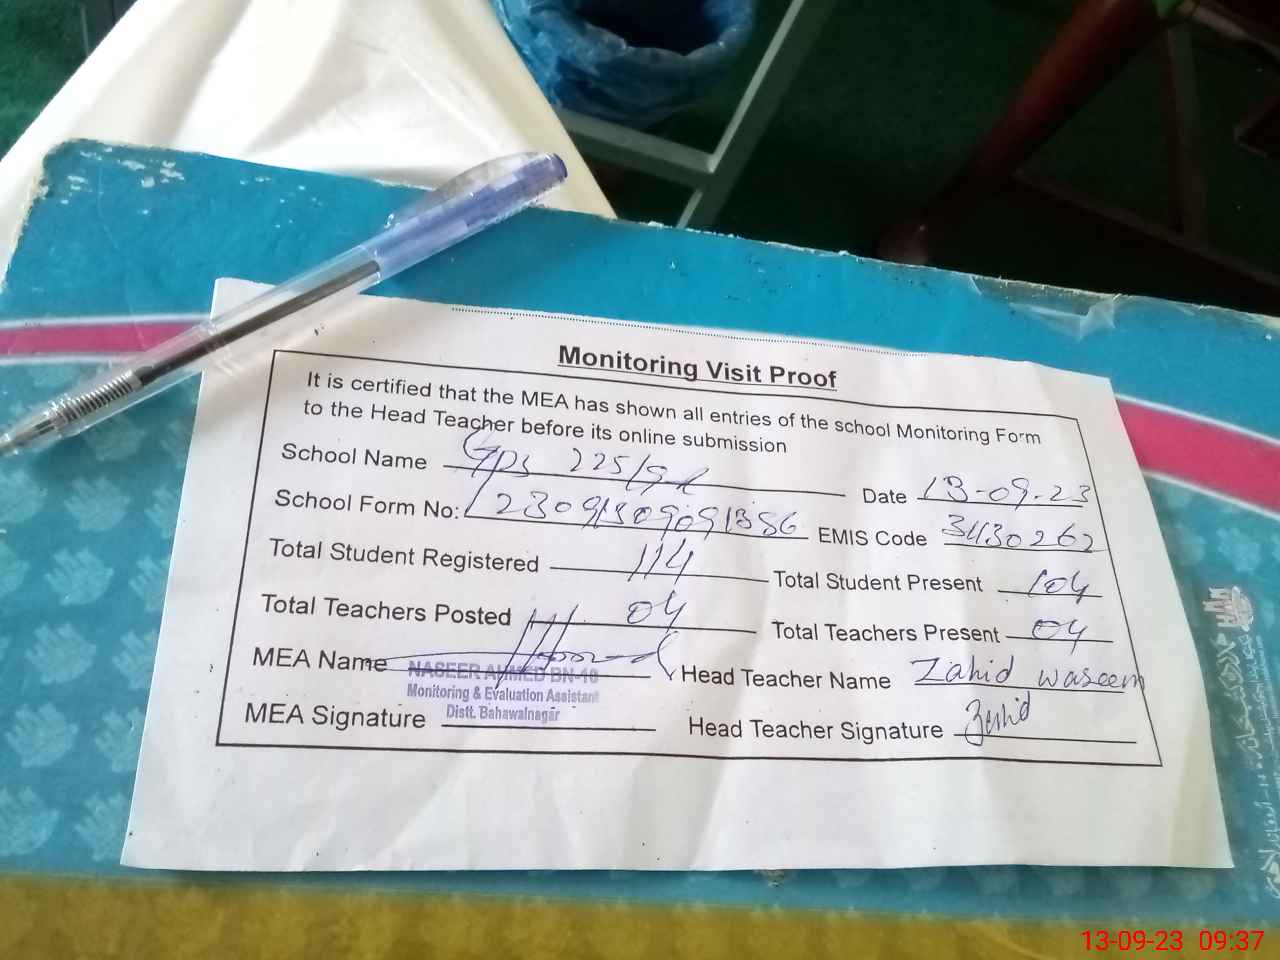 Monitoring Visit Proof
It is certified that the MEA has shown all entries of the school Monitoring Form
to the Head Teacher before its online submission
School Name Gps 225/9R Date 13-09-23
School Form No: 230913090913S6 EMIS Code 31130262
Total Student Registered 114 Total Student Present 104
Total Teachers Posted 04 Total Teachers Present 04
MEA Name Head Teacher Name Zahid waseem
NASEER AHMED BN-10
Monitoring & Evaluation Assistant
Distt. Bahawalnagar
MEA Signature Head Teacher Signature Zahid
13-09-23 09:37